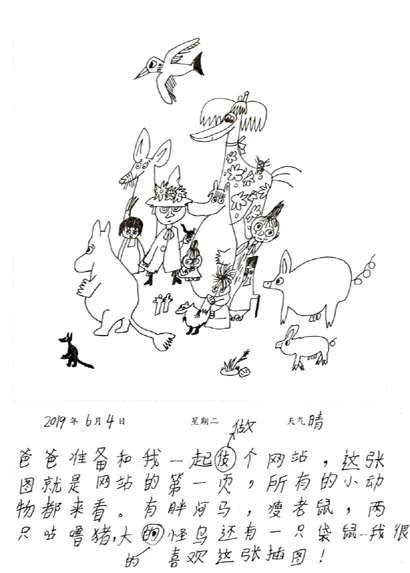 2019年6月4日 星期二 天气晴
做
爸爸准备和我一起伎个网站，这张
图就是网站的第一页，所有的小动
物都来看。有胖河马，瘦老鼠，两
只咕噜猪，大的怪鸟还有一只袋鼠…我很
的 喜欢这张插图！